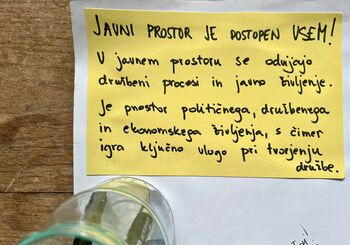 JAVNI PROSTOR JE DOSTOPEN VSEM!
V javnem prostoru se odvijajo
družbeni procesi in javno življenje.
Je prostor političnega, družbenega
in ekonomskega življenja, s čimer
igra ključno vlogo pri tvorjenju
družbe.